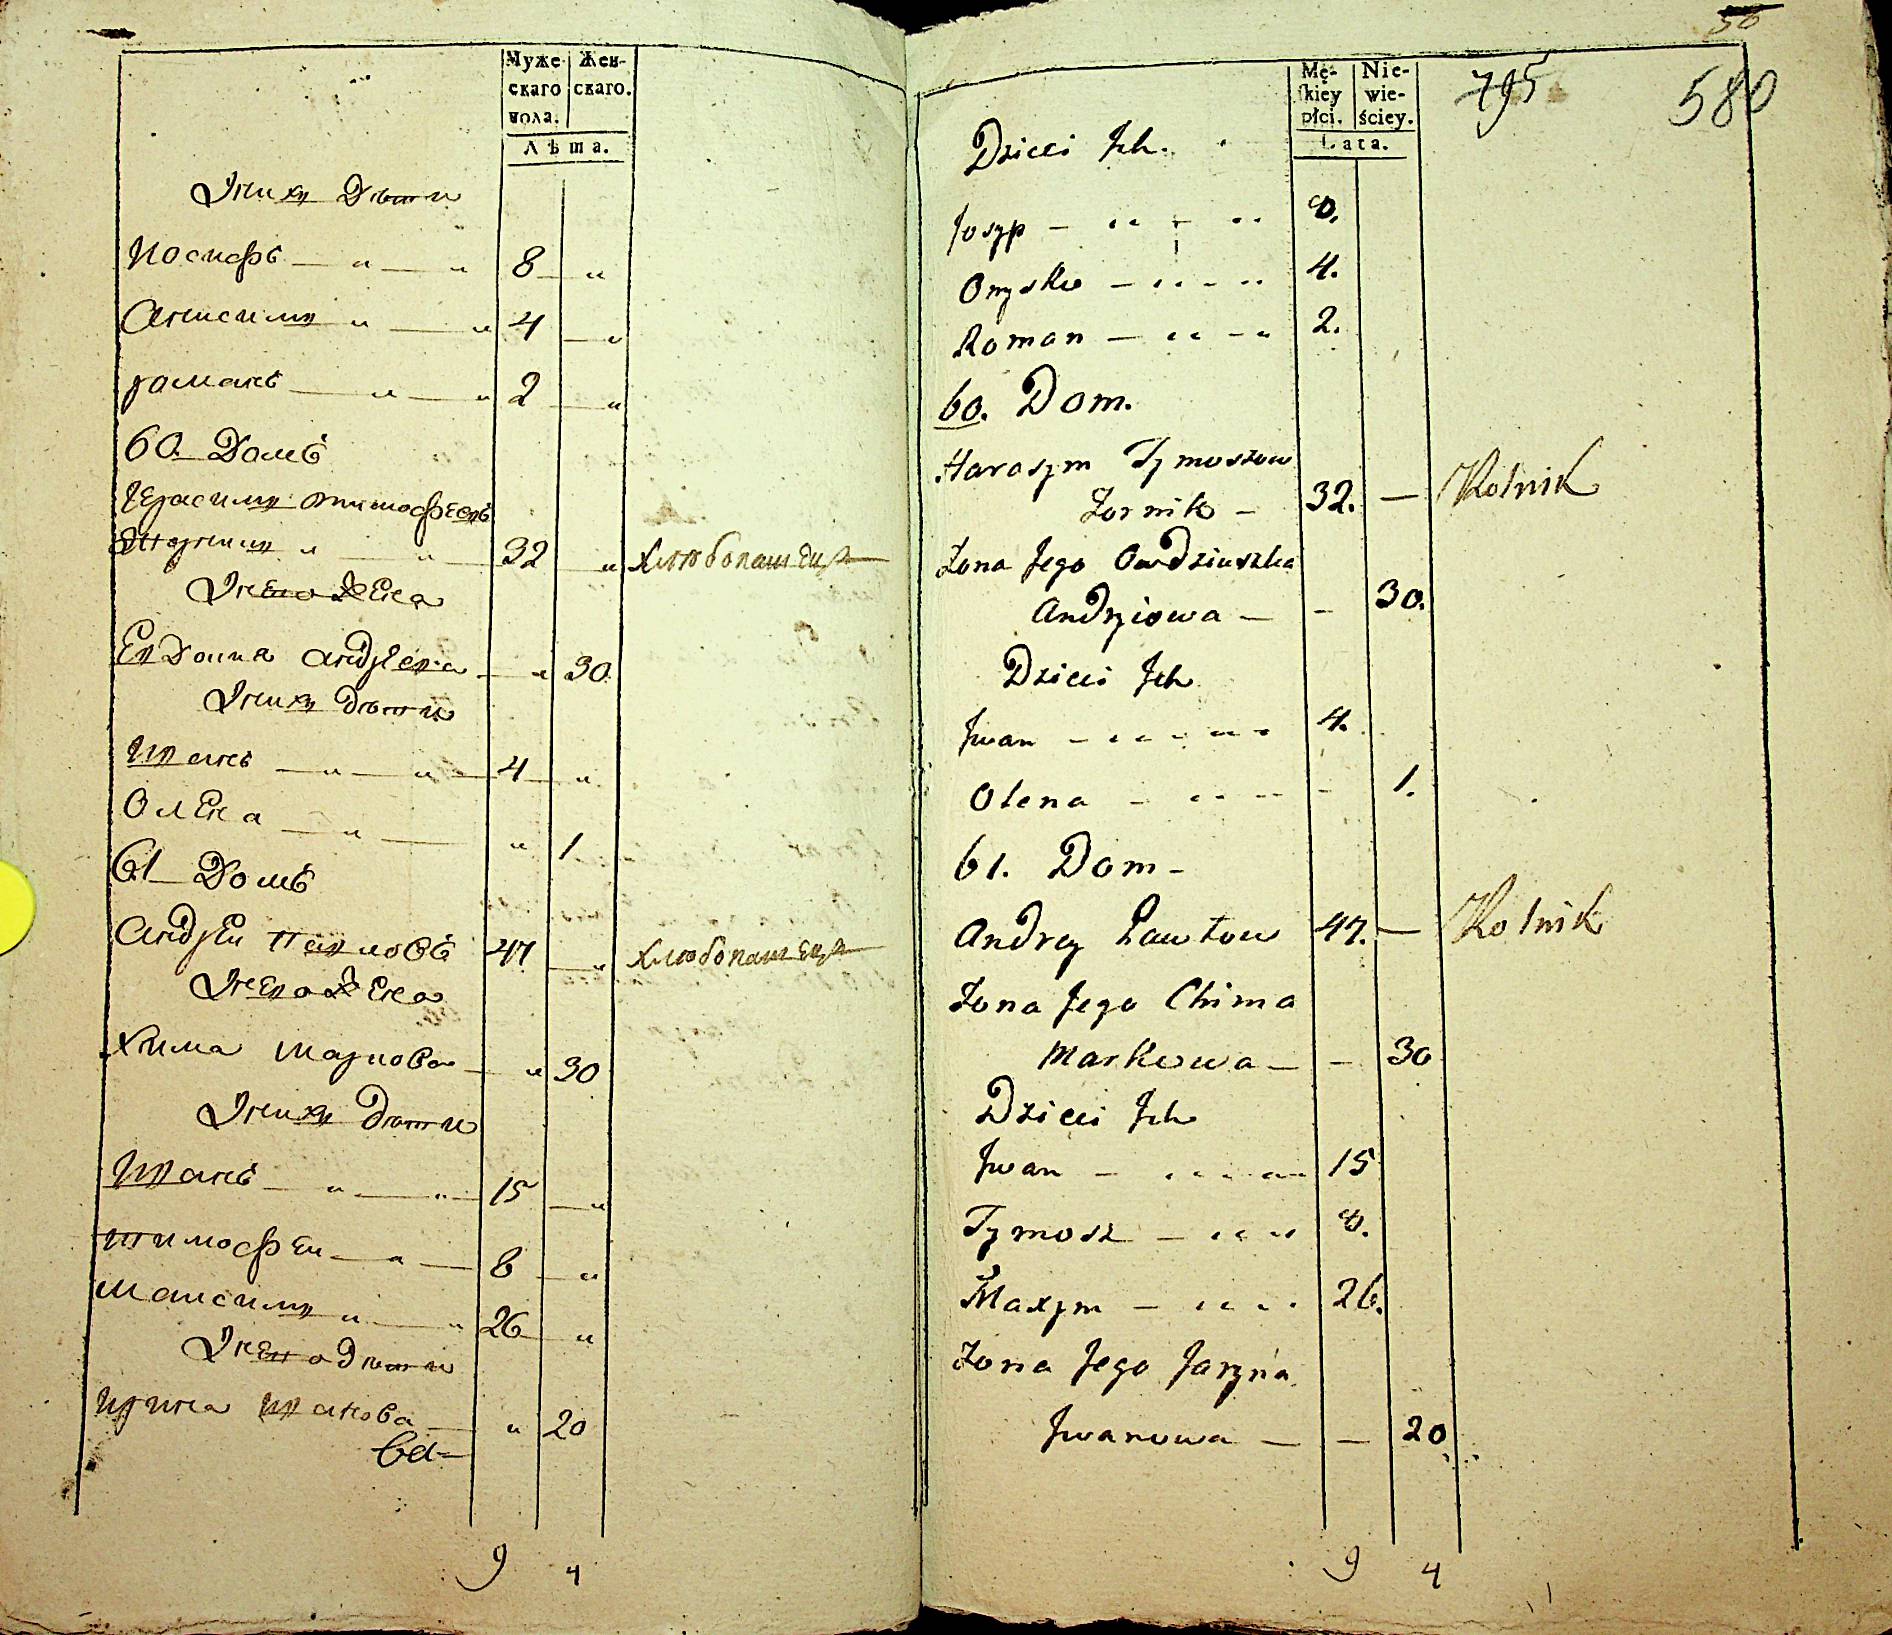 Муже-
скаго
пола.
Жен-
скаго.
Лѣта.
Иихъ Дѣти
Иосифъ — „ — „ 8 — „
Анисимъ „ — „ 4 — „
романъ — „ — „ 2 — „
60. Домъ
Герасимъ тимофеевъ
32 — „ хлѣбопашецъ
Иего Жена
Евдокиа андреева — „ 30
Иихъ дѣти
Иванъ — „ — „ — 4 — „
Олена — „ — „ 1
61 Домъ
андрей Павловъ 47 — „ хлѣбопашецъ
Иего Жена
Хима маркова — „ 30
Иихъ дѣти
Иванъ — „ — „ 15 — „
тимофеи — „ — 8 — „
максимъ „ — „ 26 — „
Иего дѣти
ирина иванова — „ 20
Mę-
ſkiey
płci.
Nie-
wie-
ściey.
Lata.
50
795
580
Dzieci Ich.
Josyp — „ — „ 8.
Onysko — „ — „ 4.
Roman — „ — „ 2.
60. Dom.
Harasym Tymoszow
Zornik — 32. — Rolnik
Żona Jego Owdziuszka
Andryiowa — — 30.
Dzieci Ich
Jwan — „ — „ 4.
Olena — „ — — 1.
61. Dom —
Andrey Pawłow 47. — Rolnik
Żona Jego Chima
Markowa — — 30
Dzieci Ich
Jwan — „ — 15
Tymosz — „ „ 8.
Maxym — „ „ 26.
Żona Jego Jaryna
Jwanowa — — 20
9 4
9 4